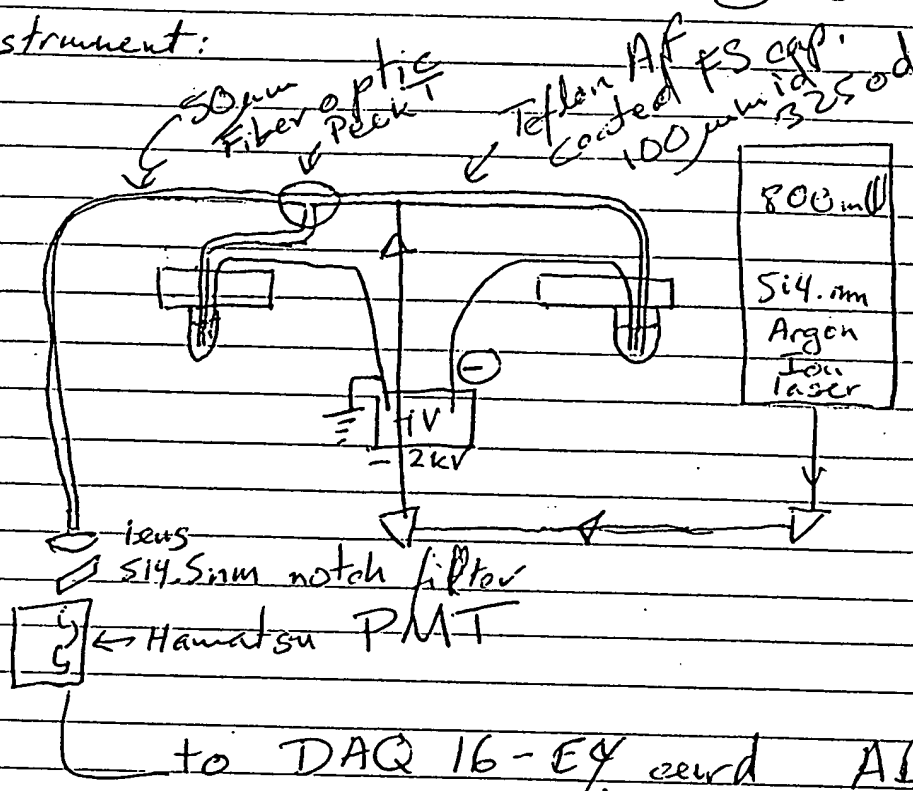 strument:
50 µm
Fiber optic
Peek T
Teflon Af
coated FS cap.
100 µm id
325 od
800 mW
514. nm
Argon
Ion
laser
-
HV
- 2kV
lens
514.5nm notch filter
← Hamatsu PMT
to DAQ 16-E4 card AI